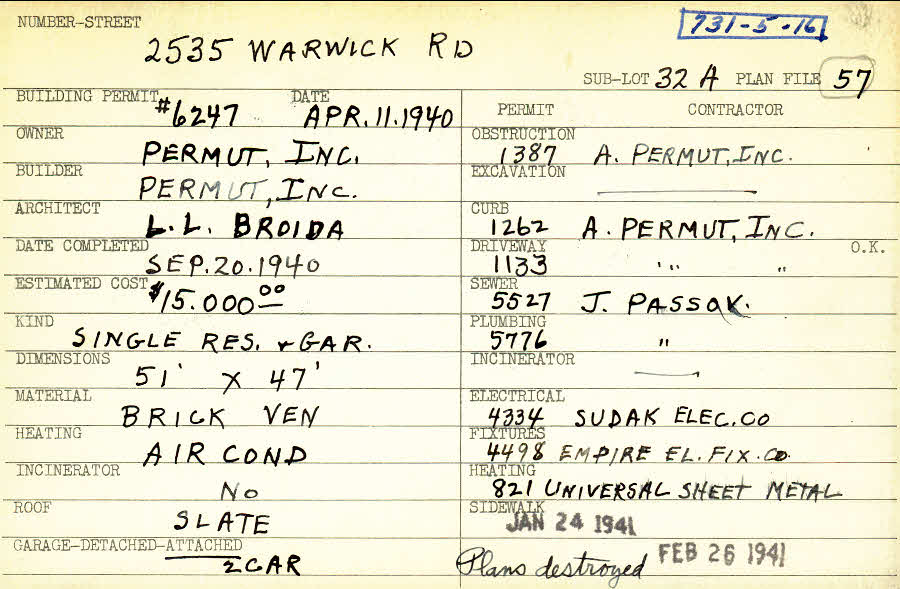 NUMBER-STREET
731-5-16
2535 WARWICK RD
SUB-LOT 32 A PLAN FILE 57
BUILDING PERMIT #6247 DATE APR. 11. 1940
OWNER
PERMUT, INC.
BUILDER
PERMUT, INC.
ARCHITECT
L. L. BROIDA
DATE COMPLETED
SEP. 20. 1940
ESTIMATED COST $15.000 00
KIND
SINGLE RES. & GAR.
DIMENSIONS
51' X 47'
MATERIAL
BRICK VEN
HEATING
AIR COND
INCINERATOR
No
ROOF
SLATE
GARAGE-DETACHED-ATTACHED
2 CAR
PERMIT CONTRACTOR
OBSTRUCTION
1387 A. PERMUT, INC.
EXCAVATION
CURB
1262 A. PERMUT, INC.
DRIVEWAY O.K.
1133 " "
SEWER
5527 J. PASSOV.
PLUMBING
5776 "
INCINERATOR
ELECTRICAL
4334 SUDAK ELEC. CO
FIXTURES
4498 EMPIRE EL. FIX. CO.
HEATING
821 UNIVERSAL SHEET METAL
SIDEWALK
JAN 24 1941
Plans destroyed FEB 26 1941